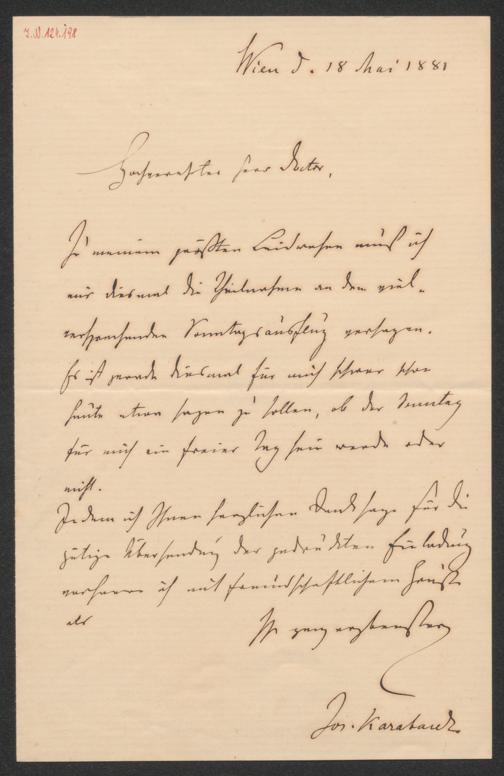 I.N. 124.198
Wien d. 18 Mai 1881
Hochverehrter Herr Doctor,
Zu meinem größten Leidwesen muß ich
mir diesmal die Theilnahme an dem viel-
versprechenden Sonntagsausflug versagen.
Es ist gerade diesmal für mich schwer schon
heute etwas sagen zu sollen, ob der Sonntag
für mich ein freier Tag sein werde oder
nicht.
Indem ich Ihnen herzlichen Dank sage für die
gütige Übersendung der gedruckten Einladung
verharre ich mit freundschaftlichem Gruße
als
Ihr ganz ergebenster
Jos. Karabacek